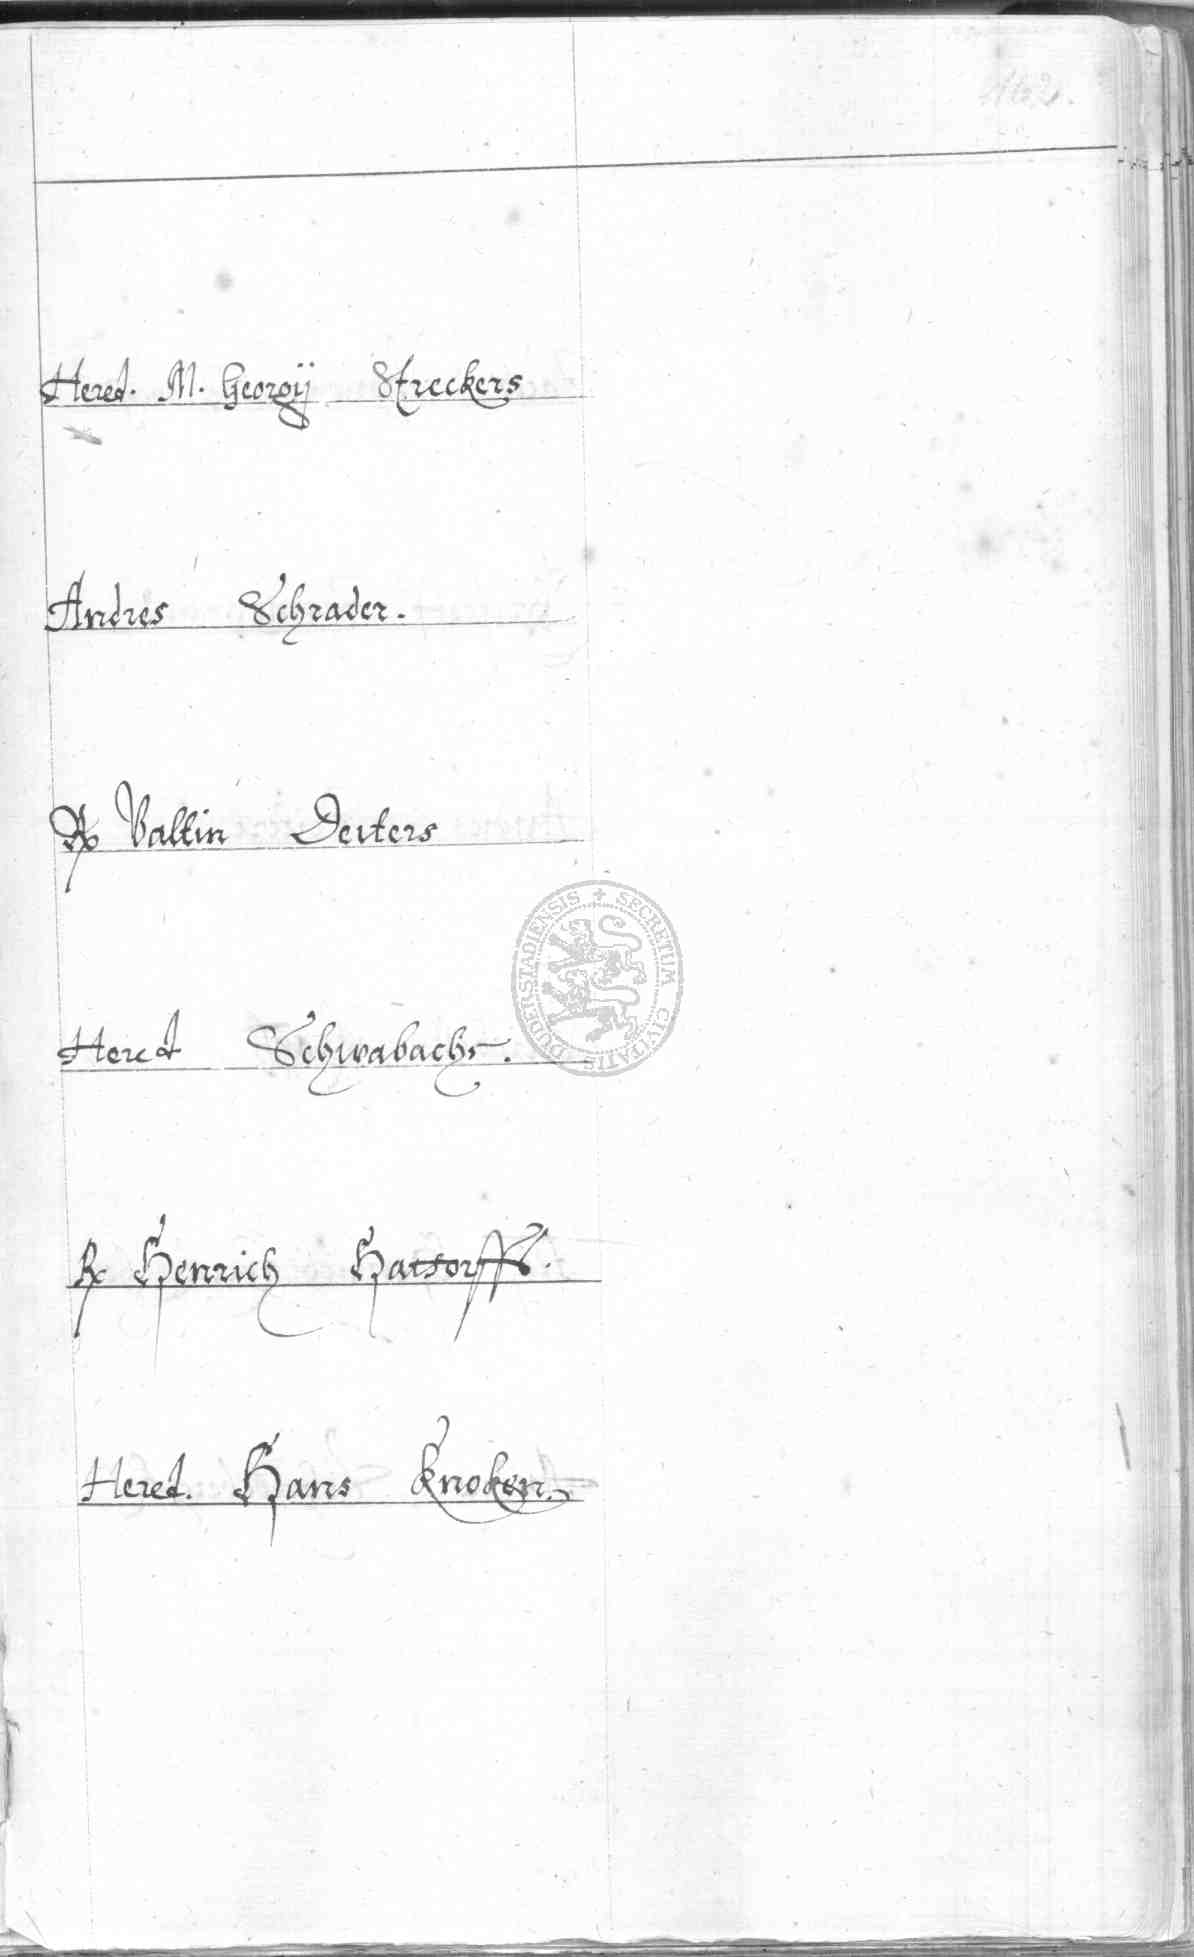 162.
Hered. M. Georgij Streckers
Andres Schrader.
Rx Valtin Deiters
Hered Schwabachs.
Rx Henrich Hattorffs.
Hered. Hans Knoken.
SECRETUM CIVITATIS DUDERSTADIENSIS